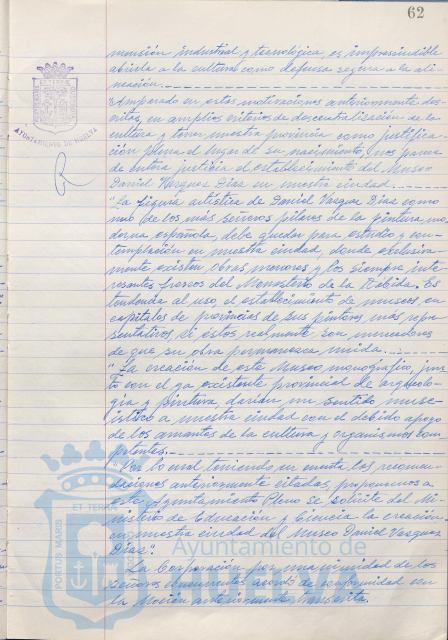 62
mensión industrial y tecnológica, es imprescindible
abrirla a la cultura como defensa segura a la alie
nación.
"Amparado en estas motivaciones anteriormente des
critas, en amplios criterios de descentralización de la
cultura y tener nuestra provincia como justifica
ción plena el lugar de su nacimiento, nos parece
de entera justicia el establecimiento del Museo
Daniel Vazquez Diaz en nuestra ciudad.
"La figura artística de Daniel Vazquez Diaz como
uno de los más señeros pilares de la pintura mo
derna española, debe quedar para estudio y con
templación en nuestra ciudad, donde exclusiva
mente existen obras menores y los siempre inte
resantes frescos del Monasterio de la Rábida. Es
tendencia al uso, el establecimiento de museos en
capitales de provincias de sus pintores más repre
sentativos, si éstos realmente son merecedores
de que su obra permanezca unida.
"La creación de este Museo monográfico, jun
to con el ya existente provincial de arqueolo
gía y pintura darían un sentido muse
ístico a nuestra ciudad con el debido apoyo
de los amantes de la cultura y organismos com
petentes.
"Por lo cual teniendo en cuenta las recomen
daciones anteriormente citadas, proponemos a
este Ayuntamiento Pleno se solicite del Mi
nisterio de Educación y Ciencia la creación
en nuestra ciudad del Museo Daniel Vazquez
Diaz".
La Corporación por unanimidad de los
señores concurrentes acordó de conformidad en
la Moción anteriormente transcrita.
AYUNTAMIENTO DE HUELVA
ET TERRA
PORTUS MARIS
Ayuntamiento de